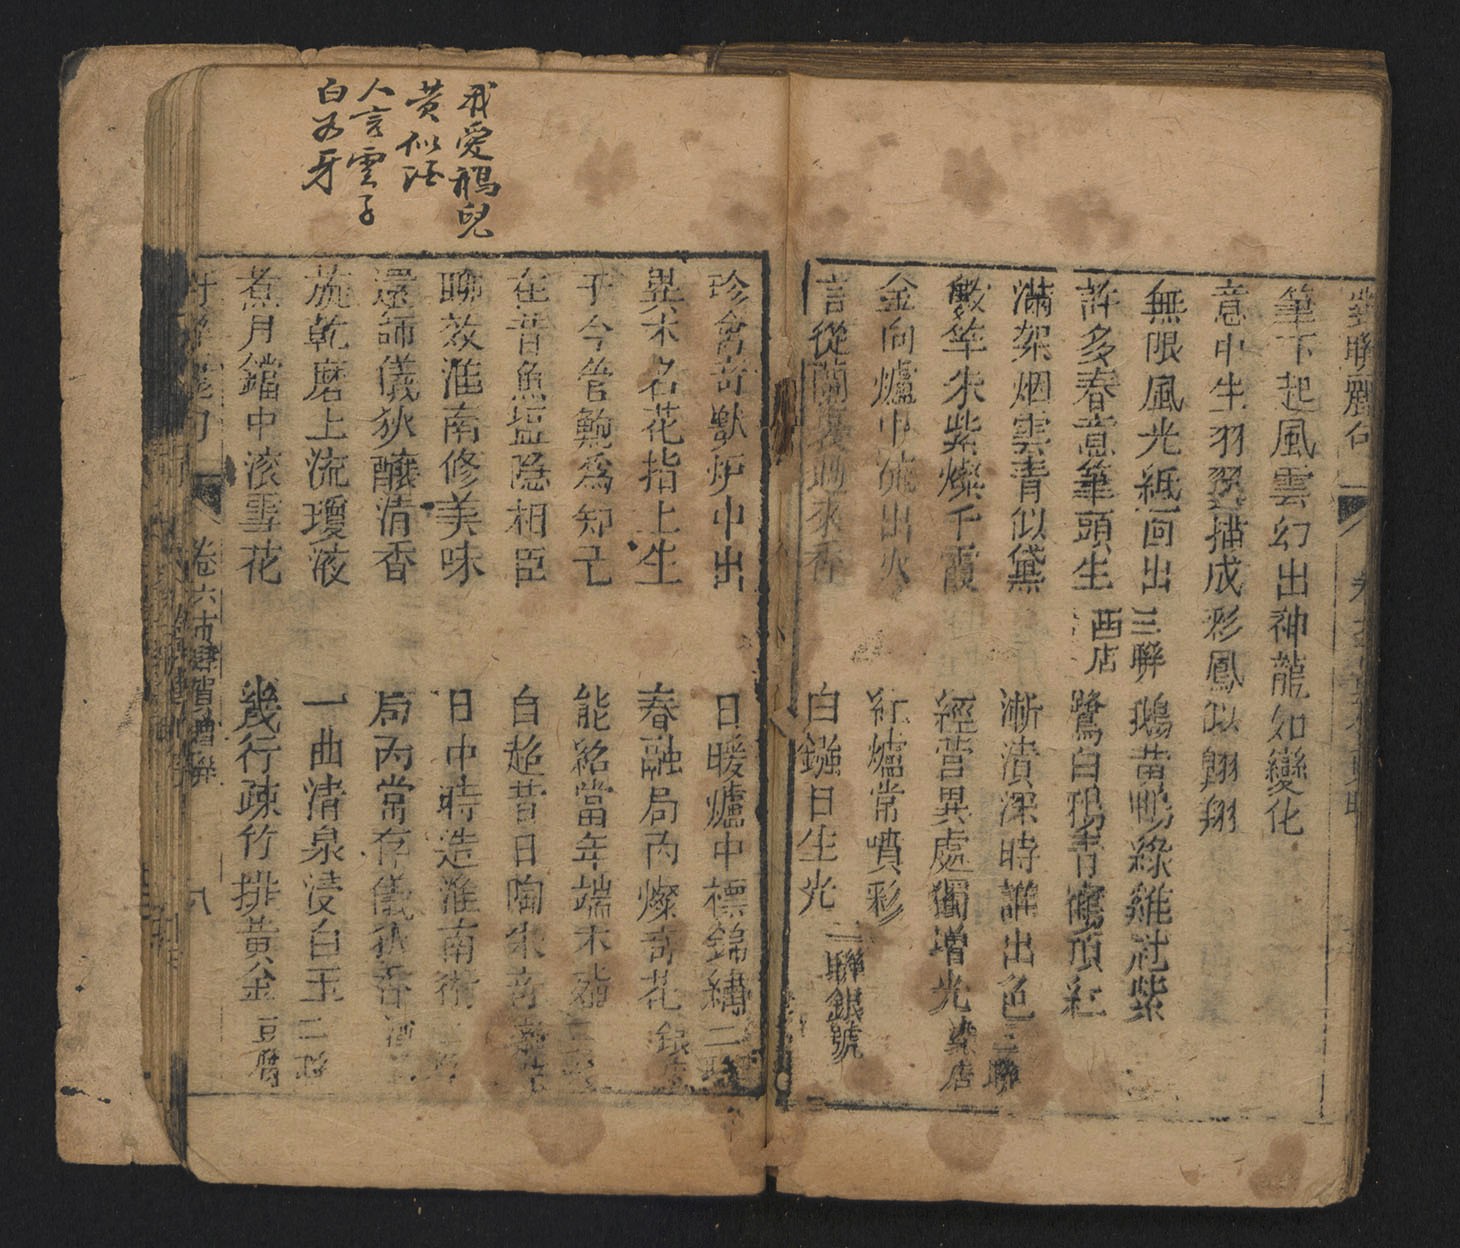 對聯麗句
筆下起風雲幻出神龍如變化
意中生羽翼描成彩鳳似翺翔
無限風光紙面出 三聯 鵝黃鴨綠雞冠紫
許多春意筆頭生 画店 鷺白鴉青鶴頂紅
滿架烟雲青似黛 漸漬深時誰出色 三聯
數竿朱紫燦千霞 經營異處獨增光 染店
金向爐中流出火 紅爐常噴彩
言從閙裏 來香 白鏹日生光 一聯銀號
珍禽奇獸炉中出 日暖爐中標錦繡 二聯
異木名花指上生 春融局內燦奇花 銀店
于今管鮑為知己 能紹當年端木
在昔魚塩隐相臣 自超昔日陶朱
聊效淮南修美味 日中時造淮南術
還歸儀狄釀清香 局內常存儀狄香
旋乾磨上流瓊液 一曲清泉浸白玉 二聯
煮月鐺中滚雪花 幾行疎竹排黃金 豆腐
卷六市肆賀贈聯 八
我愛鵝兒
黃似酒
人言雲子
白如牙